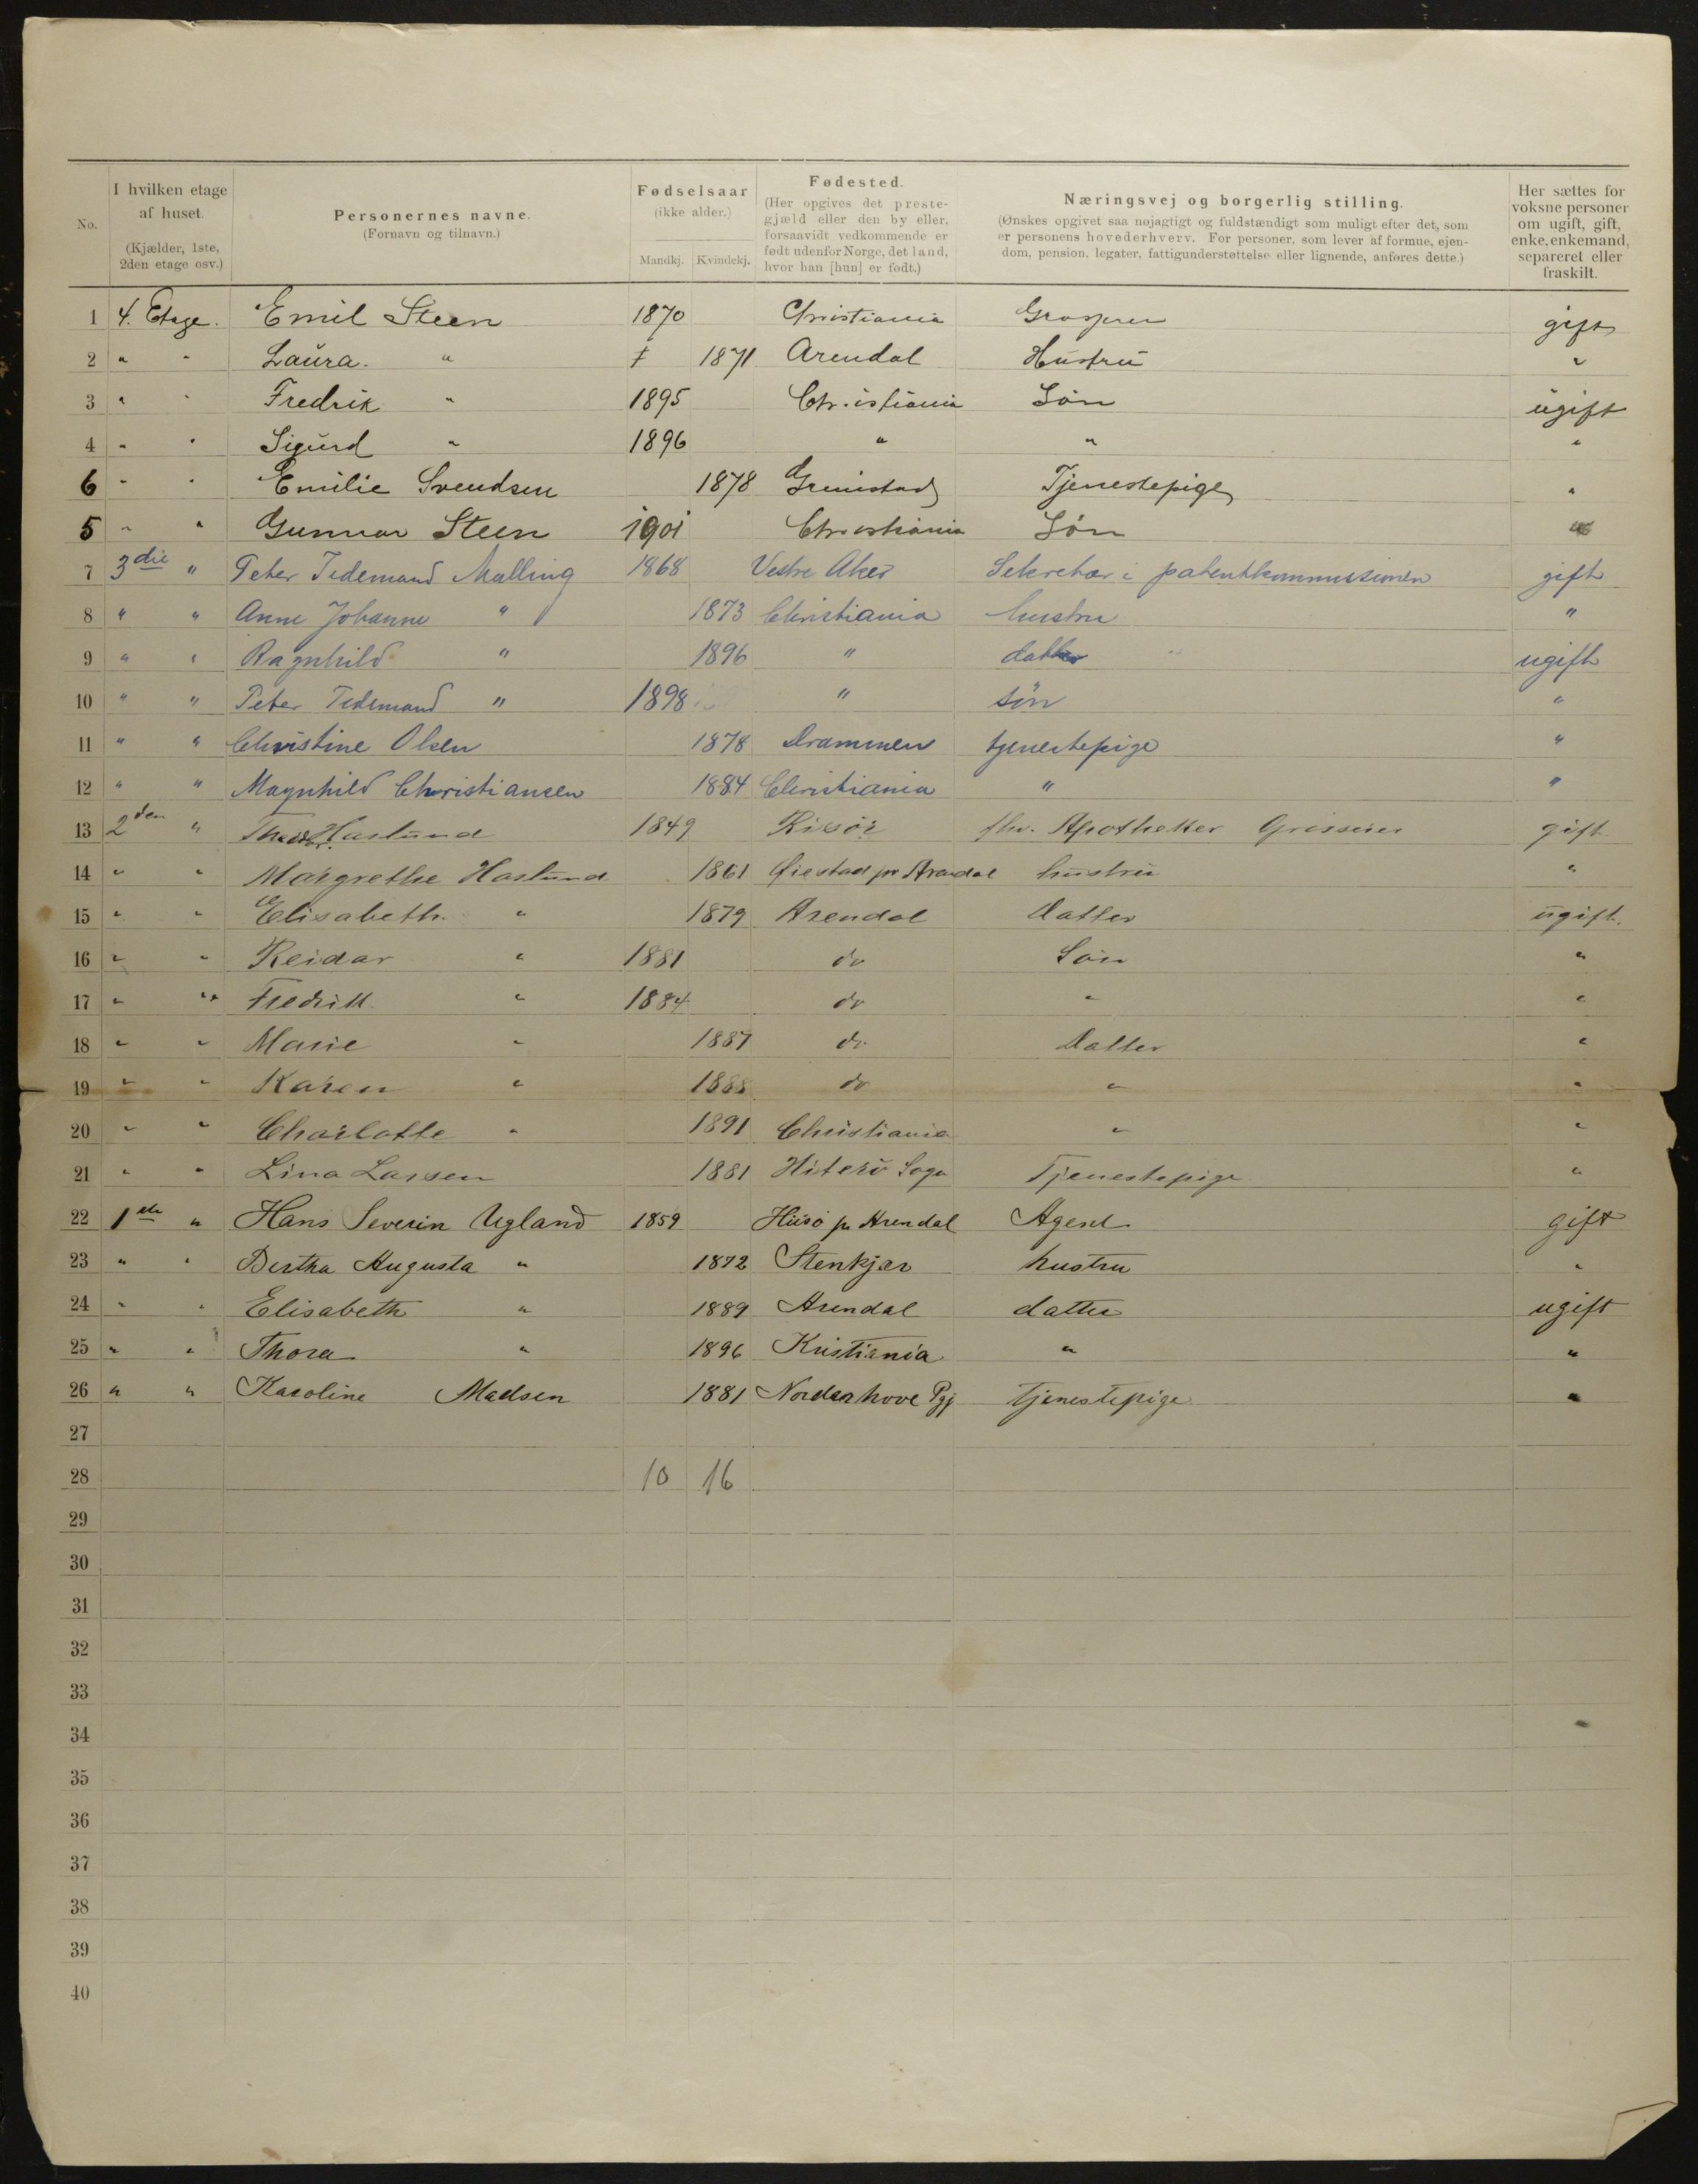 No. | I hvilken etage af huset. (Kjælder, 1ste, 2den etage osv.) | Personernes navne. (Fornavn og tilnavn.) | Fødselsaar (ikke alder.) Mandkj. | Kvindekj. | Fødested. (Her opgives det prestegjæld eller den by eller, forsaavidt vedkommende er født udenfor Norge, det land, hvor han [hun] er født.) | Næringsvej og borgerlig stilling. (Ønskes opgivet saa nøjagtigt og fuldstændigt som muligt efter det, som er personens hovederhverv. For personer, som lever af formue, ejendom, pension, legater, fattigunderstøttelse eller lignende, anføres dette.) | Her sættes for voksne personer om ugift, gift, enke, enkemand, separeret eller fraskilt.
1 4. Etage. Emil Steen 1870 Christiania gift
2 " " Laura. " 1871 Arendal Hustru "
3 " " Fredrik " 1895 Christiania Søn ugift
4 " " Sigurd " 1896 " " "
6 " " Emilie Svendsen 1878 Grimstad Tjenestepige "
5 " " Gunnar Steen 1901 Christiania Søn
7 3die " Peter Tidemand Malling 1868 Vestre Aker Sekretær i patentkommissionen gift
8 " " Anne Johanne " 1873 Christiania hustru "
9 " " Ragnhild " 1896 " datter ugift
10 " " Peter Tidemand " 1898 " søn "
11 " " Christine Olsen 1878 Drammen tjenestepige "
12 " " Magnhild Christiansen 1884 Christiania " "
13 2den " Haslund 1849 Risør fhv. Apotheker Grosserer gift
14 " " Margrethe Haslund 1861 Øiestad pr Arendal hustru "
15 " " Elisabeth " 1879 Arendal Datter ugift.
16 " " Reidar " 1881 do Søn "
17 " " Fredrik " 1884 do " "
18 " " Marie " 1887 do Datter "
19 " " Karen " 1888 do " "
20 " " Charlotte " 1891 Christiania " "
21 " " Lina Larsen 1881 Hiterø Sogn Tjenestepige "
22 1ste " Hans Severin Ugland 1859 Hisø pr Arendal Agent gift
23 " " Bertha Augusta " 1872 Stenkjær hustru "
24 " " Elisabeth " 1889 Arendal datter ugift
25 " " Thora " 1896 Kristiania " "
26 " " Karoline Madsen 1881 Norderhove Pgj tjenestepige "
27
28 10 16
29
30
31
32
33
34
35
36
37
38
39
40